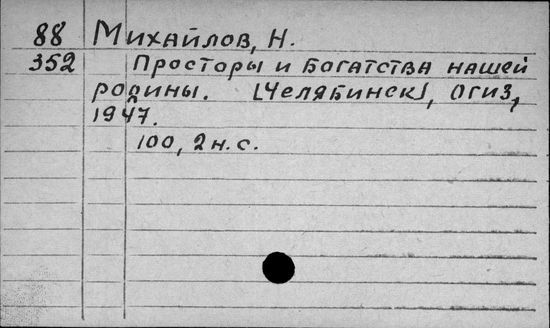 88 Михайлов, Н.
352 Просторы и богатства нашей
родины. [Челябинск], Огиз,
1947.
100, 2 н. с.